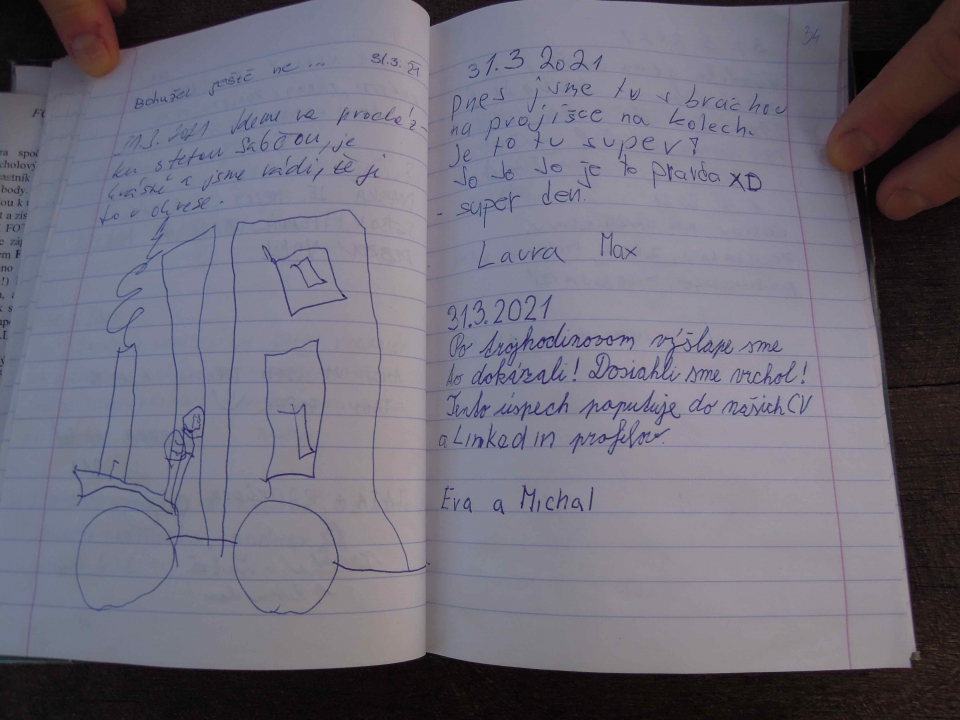 Bohužel ještě ne ... 31.3.21
31.3.2021 Jdeme na procház-
ku s tetou je
krásně a jsme rádi, že ji
to v okrese.
34
31.3 2021
Dnes jsme tu s bráchou
na projišce na kolech.
Je to tu super?
Jo Jo Jo je to pravda XD
- super den.
Laura Max
31.3.2021
Po trojhodinovom výšlape sme
to dokázali! Dosiahli sme vrchol!
Tento úspech paputuje do našich CV
a Linkedin profilov.
Eva a Michal